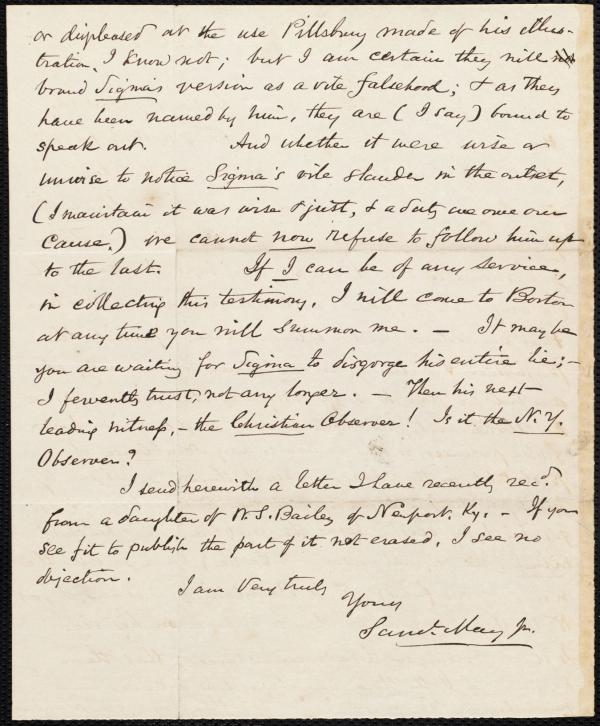 or displeased at the use Pillsbury made of his illus-
tration, I know not; but I am certain they will
brand Sigma's version as a vile falsehood; & as they
have been named by him, they are (I say) bound to
speak out. And whether it were wise or
unwise to notice Sigma's vile slander in the outset,
(I maintain it was wise & just, & a duty we owe our
Cause,) we cannot now refuse to follow him up
to the last. If I can be of any service,
in collecting this testimony, I will come to Boston
at any time you will summon me. — It may be
you are waiting for Sigma to disgorge his entire lie; —
I fervently trust, not any longer. — Then his next
leading witness, – the Christian Observer! Is it the N.Y.
Observer?
I send herewith a letter I have recently recd.
from a daughter of W. S. Bailey of Newport, Ky. — If you
see fit to publish the part of it not erased, I see no
objection.
I am Very truly
Yours
Saml. May Jr.